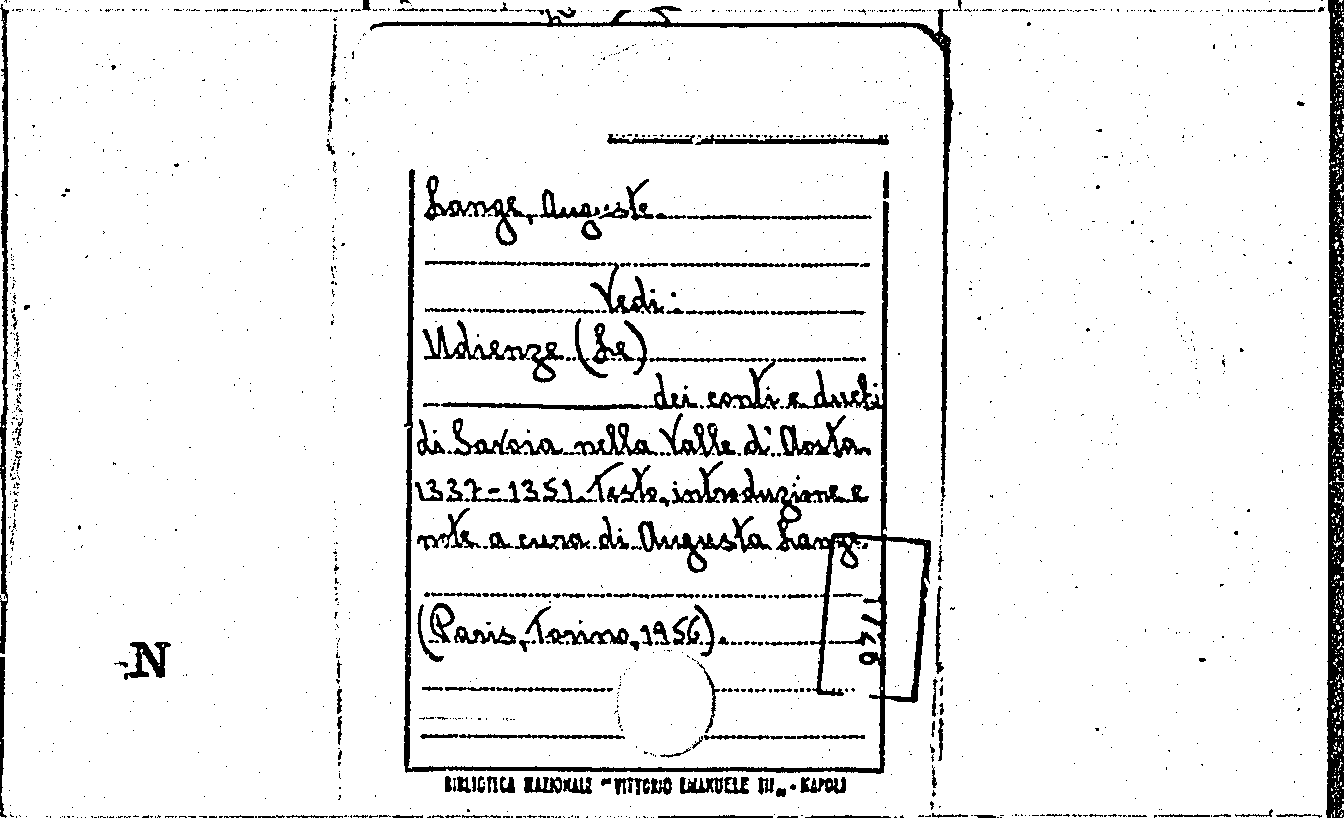 Lange, Auguste.
Vedi:
Udienze (Le)
dei conti e duchi
di Savoia nella Valle d'Aosta.
1337-1351. Testo, introduzione e
note a cura di Augusta Lange.
(Paris, Torino, 1956).
N
BIBLIOTECA NAZIONALE "VITTORIO EMANUELE III" - NAPOLI